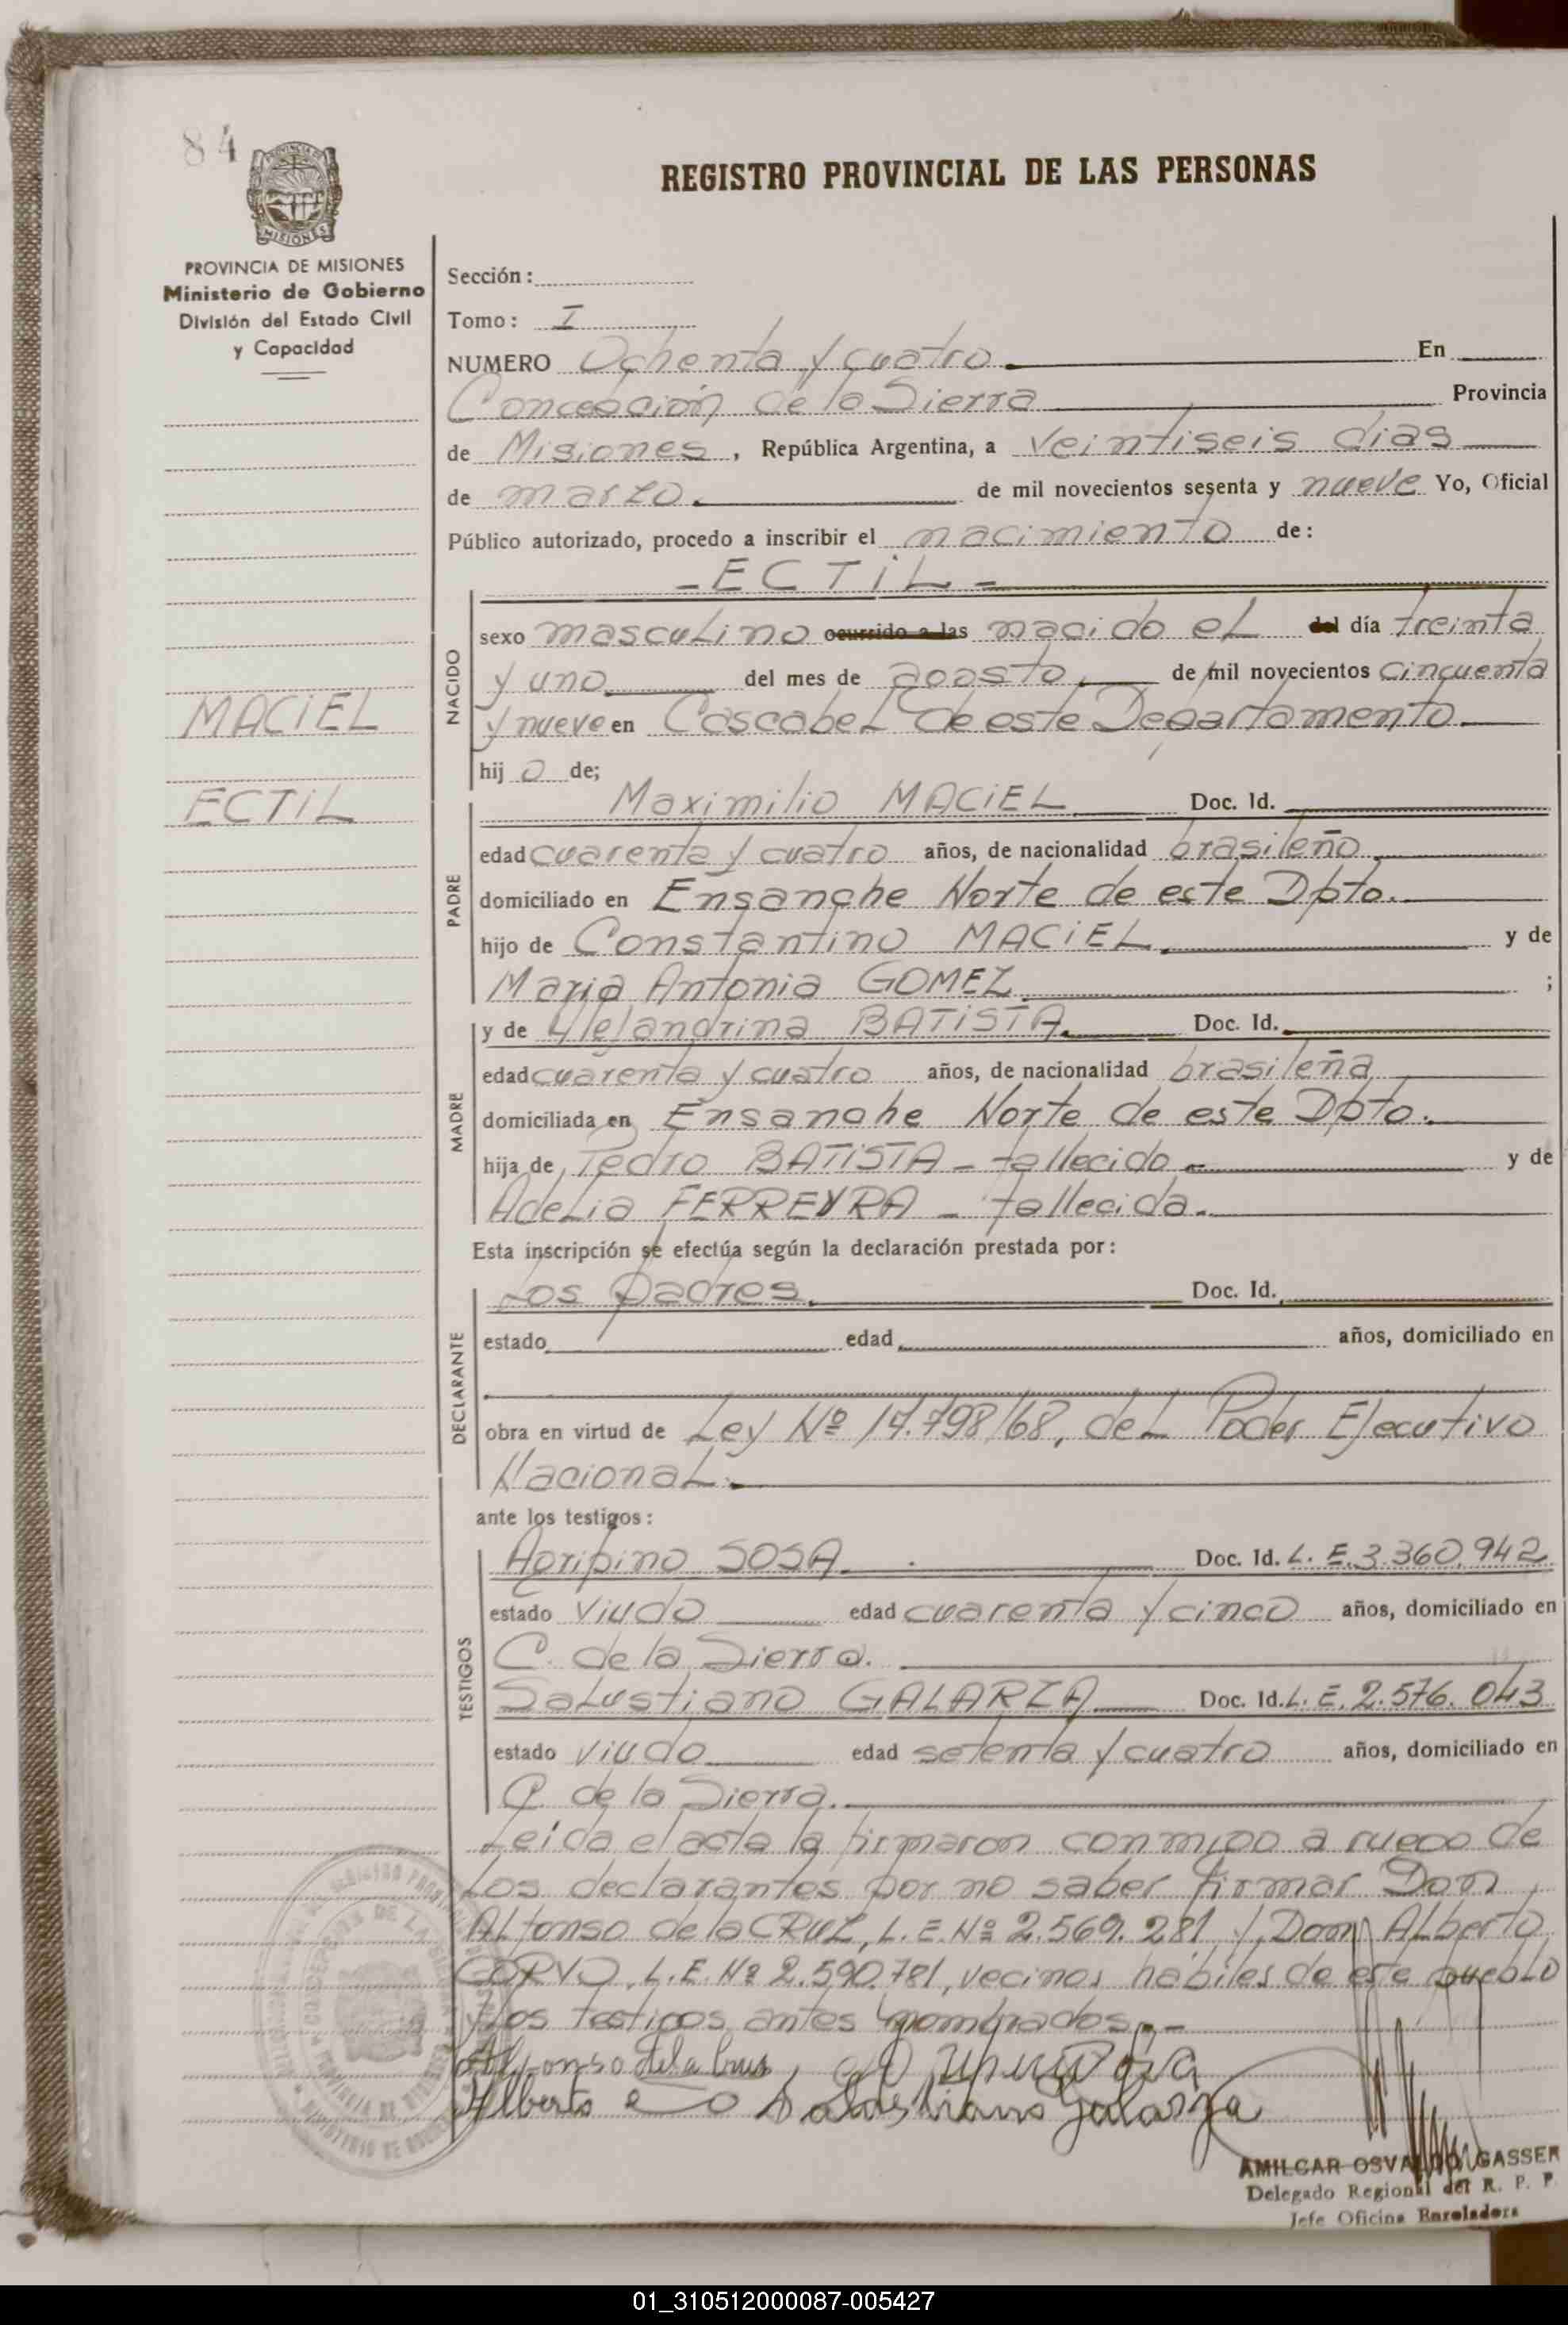 84
PROVINCIA DE
MISIONES
REGISTRO PROVINCIAL DE LAS PERSONAS
PROVINCIA DE MISIONES
Ministerio de Gobierno
División del Estado Civil
y Capacidad
MACIEL
ECTIL
Sección:
Tomo: I
NUMERO Ochenta y cuatro. En
Concepción de la Sierra Provincia
de Misiones, República Argentina, a veintiseis dias
de marzo. de mil novecientos sesenta y nueve Yo, Oficial
Público autorizado, procedo a inscribir el nacimiento de:
- ECTIL -
NACIDO
sexo masculino ocurrido a las nacido el del día treinta
y uno del mes de agosto, de mil novecientos cincuenta
y nueve en Cascabel de este Departamento.
hij o de;
PADRE
Maximilio MACIEL Doc. Id.
edad cuarenta y cuatro años, de nacionalidad brasileño
domiciliado en Ensanche Norte de este Dpto.
hijo de Constantino MACIEL. y de
Maria Antonia GOMEZ ;
MADRE
y de Alejandrina BATISTA. Doc. Id.
edad cuarenta y cuatro años, de nacionalidad brasileña
domiciliada en Ensanche Norte de este Dpto.
hija de Pedro BATISTA - fallecido - y de
Adelia FERREYRA - fallecida.
Esta inscripción se efectúa según la declaración prestada por:
DECLARANTE
Los padres. Doc. Id.
estado edad años, domiciliado en
obra en virtud de Ley Nº 17.798/68, del Poder Ejecutivo
Nacional.
ante los testigos:
TESTIGOS
Agripino SOSA. Doc. Id. L. E. 3.360.942
estado viudo edad cuarenta y cinco años, domiciliado en
C. de la Sierra.
Salustiano GALARZA Doc. Id. L. E. 2.576.043
estado viudo edad setenta y cuatro años, domiciliado en
C. de la Sierra.
Leída el acta la firmaron conmigo a ruego de
los declarantes por no saber firmar Don
Alfonso de la CRUZ, L. E. Nº 2.569.281 y, Don Alberto
CORVO, L. E. Nº 2.590.781, vecinos hábiles de este pueblo
y los testigos antes nombrados.-
Alfonso de la Cruz
Alberto Salustiano Galarza
AMILCAR OSVALDO GASSER
Delegado Regional del R. P. P.
Jefe Oficina Enroladora
01_310512000087-005427